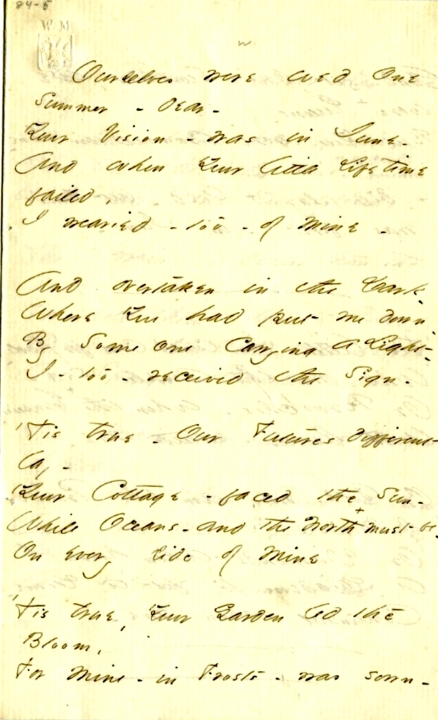 84-5
W M
Ourselves were wed one
summer - dear -
Your Vision - was in June -
And when Your little Lifetime
failed,
I wearied - too - of mine -
And overtaken in the Dark -
Where You had put me down -
By Some one carrying a Light -
I - too - received the Sign -
'Tis true - Our Futures different
lay -
Your Cottage - faced the sun -
While Oceans - and the North must be -
+
On every side of mine
'Tis true, Your Garden led the
Bloom,
For mine - in Frosts - was sown -